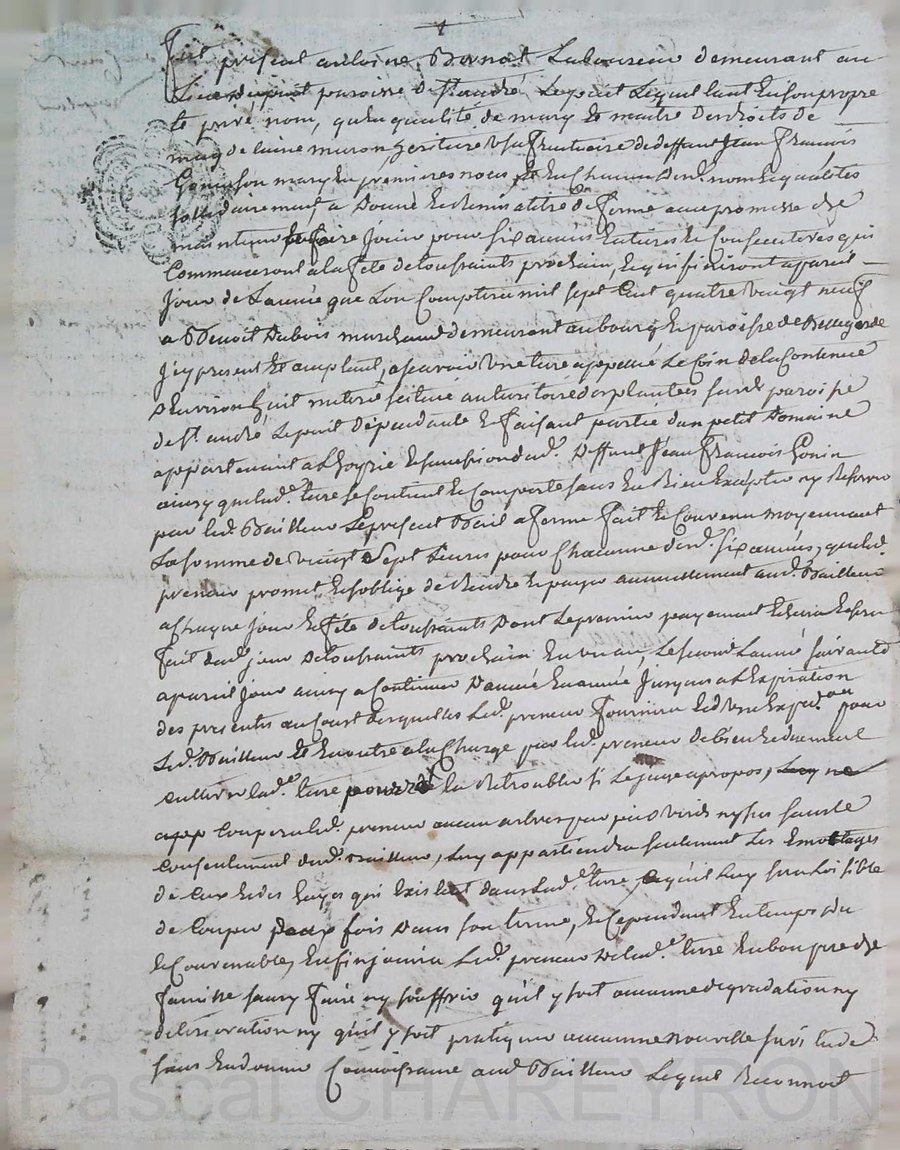 1
Fut présent antoine Bornat Laboureur demeurant au
Lieu paroisse de St andré Lepuit Lequel tant En son propre
Et privé nom, qu'En qualité de mary Et maitre Des droits de
de laine usufruitiaire de deffunt Jean François
Gonin son mary En premieres noces, Et En Chacun Desd. noms Et qualités
sollidairement a Donné Et Remis a titre De ferme avec promesse de
maintenir Et faire Jouir pour six années Entieres Et Consecutives qui
Commenceront a la fete de toussaints prochain, Et qui finiront a pareil
Jour de L'année que L'on Comptera mil sept Cent quatre vingt neuf
a Benoit Dubois marchand demeurant au bourg Et paroisse de Bellegarde
Icy present Et acceptant, a scavoir Une terre appellée Le Coin de la Contenue
D'Environ huit situé au territoire des plantées susd. paroisse
de St. andré Lepuit Dépendante Et faisant partie d'un petit Domaine
appartenant a L'hoyrie Et succession dud. Deffunt Jean François Gonin
ainsy que lad. terre se Contient Et Comporte sans En Rien Excepter ny Reserver
par led. Bailleur Le present Bail a ferme fait Et Convenu moyennant
La somme de vingt Sept Livres pour Chacune desd. six années, que led.
preneur promet Et s'oblige de Rendre Et payer annuellement aud. Bailleur
a Chaque Jour Et fete de toussaints Dont Le premier payement Echeira Et sera
fait aud. jour De toussaints prochain En un an, Le second L'année suivante
a pareil jour ainsy a Continuer D'année En année Jusques a L'Expiration
des presentes au Court Desquelles Led. preneur fournira Exped.on pour
Led. Bailleur Et En outre a la Charge par led. preneur De bien Et duement
cultiver lad. terre pourra la Retroubler s'il Le juge a propos,
Couper led. preneur aucun arbres par pied verds ny sec sans Le
Consentement dud. Bailleur, Luy appartiendra seulement Les Emottages
de Ceux Et des hayes qui Existent dans lad. terre, Ce qu'il Luy sera Loisible
de Couper Deux fois Dans son terme, Et Cependant En temps Du
Et Convenable, Enfin jouira Led. preneur De lad. terre En bon pere de
famille sans y faire ny souffrir qu'il y soit aucune degradation ny
déterioration ny qu'il y soit pratiqué aucunne Nouvelle servitude
sans En donner Connoissance aud. Bailleur Lequel Reconnoit
Pascal CHAREYRON